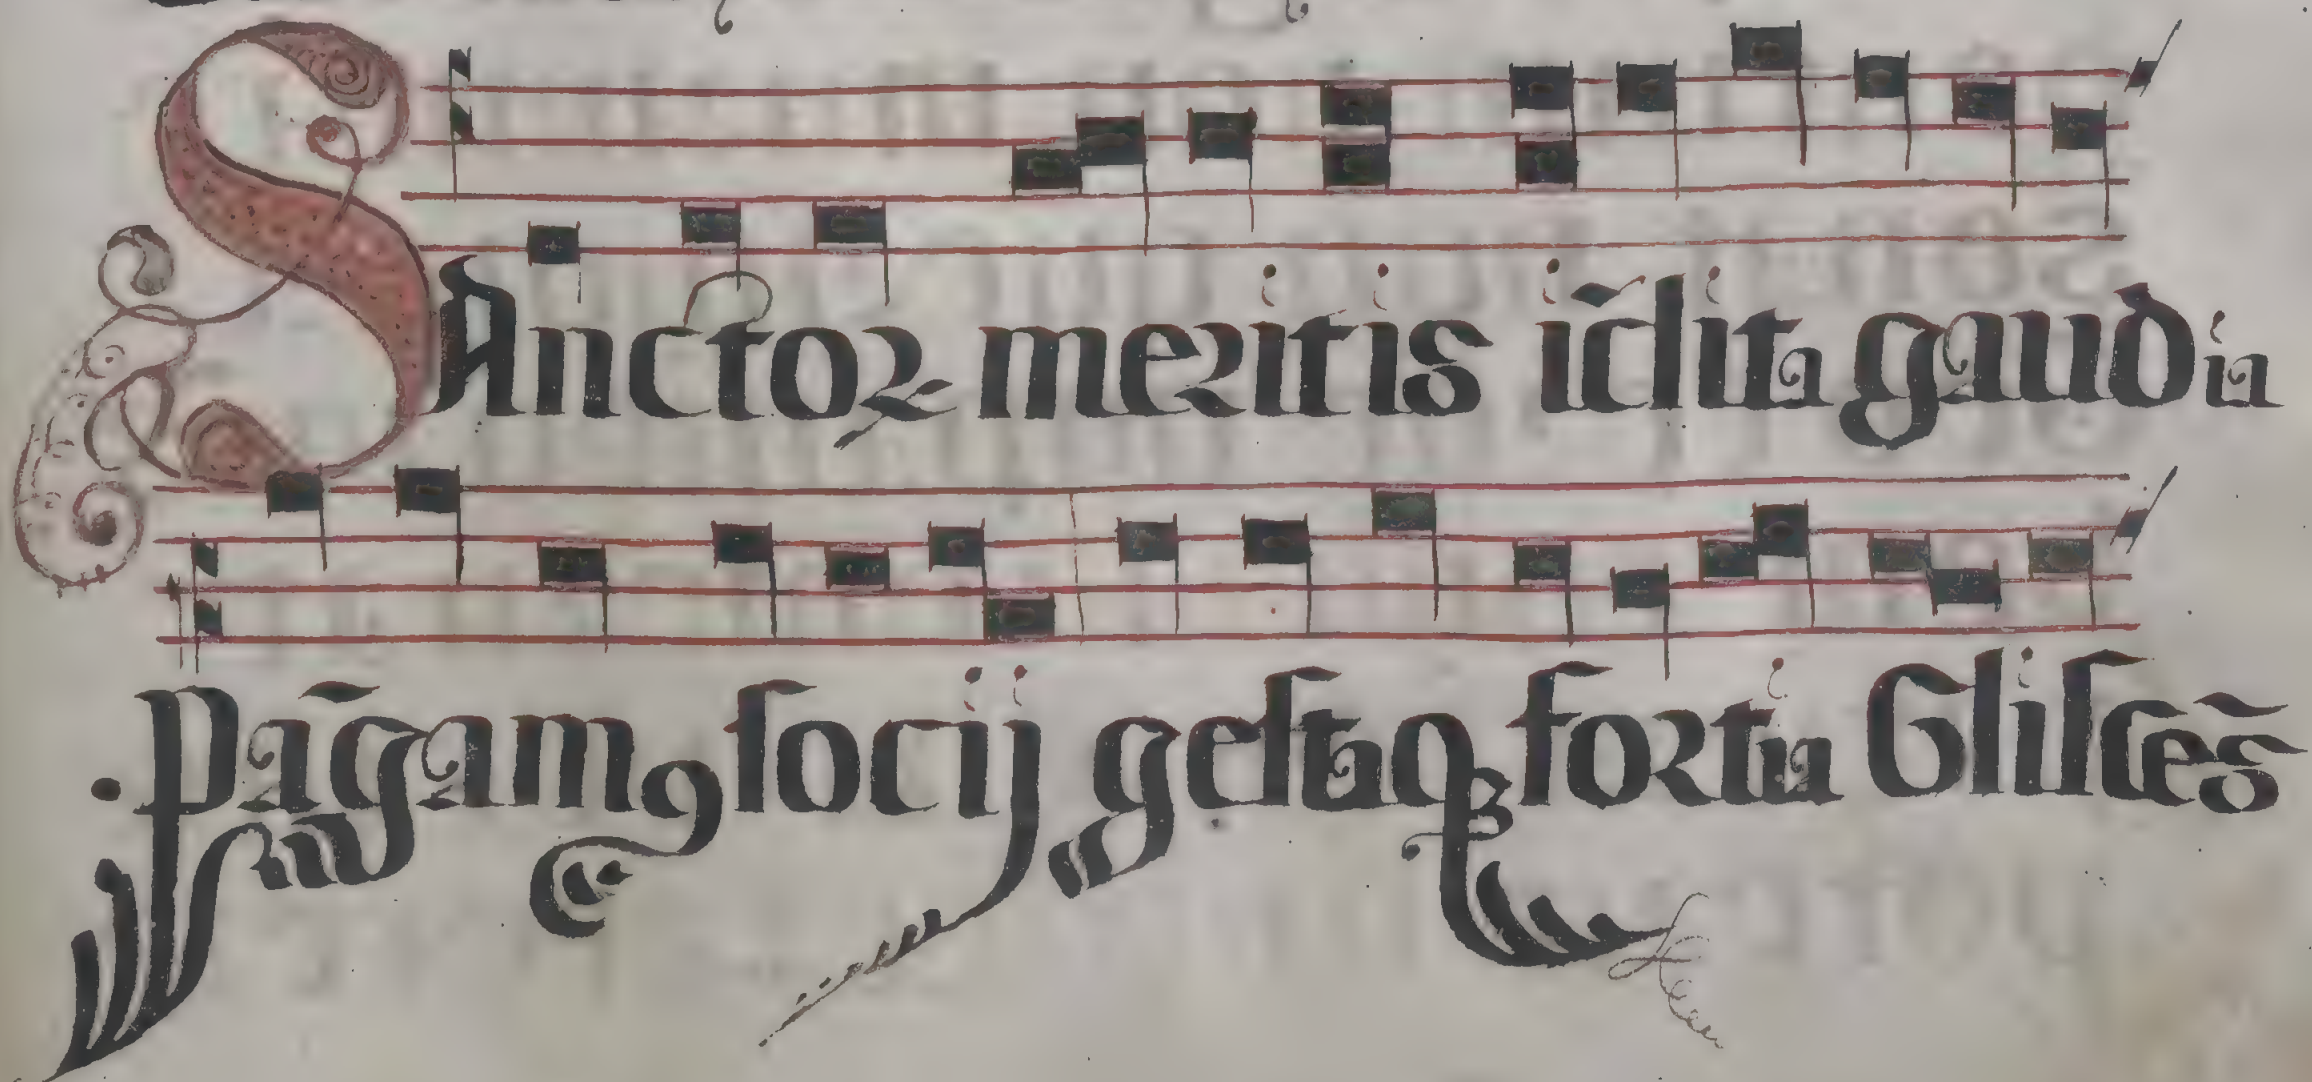 SAnctoꝝ meritis icl̄ita gaudia
Pāgamꝯ socij gestaqꝫ fortia Glisces̄